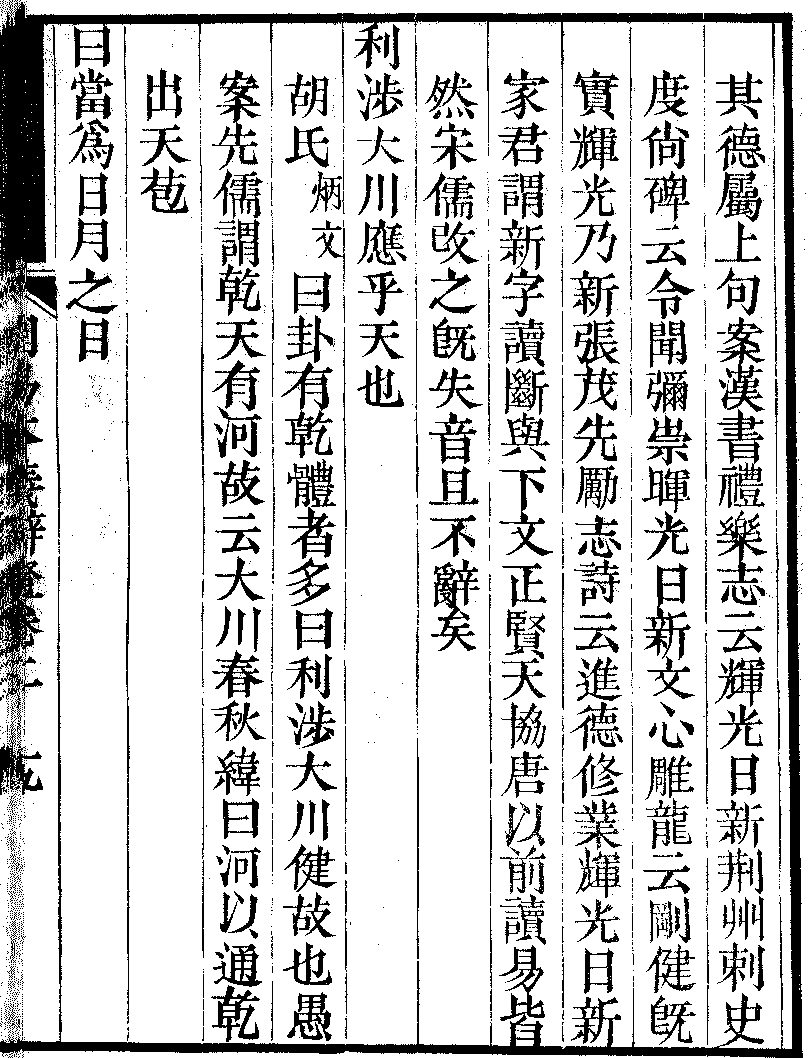 其德屬上句案漢書禮樂志云輝光日新荆州刺史
度尙碑云令聞彌崇暉光日新文心雕龍云剛健旣
實輝光乃新張茂先勵志詩云進德修業輝光日新
家君謂新字讀斷與下文正賢天協唐以前讀易皆
然宋儒改之旣失音且不辭矣
利涉大川應乎天也
胡氏炳文曰卦有乾體者多曰利涉大川健故也愚
案先儒謂乾天有河故云大川春秋緯曰河以通乾
出天苞
曰當爲日月之日
周易本義辨證卷二